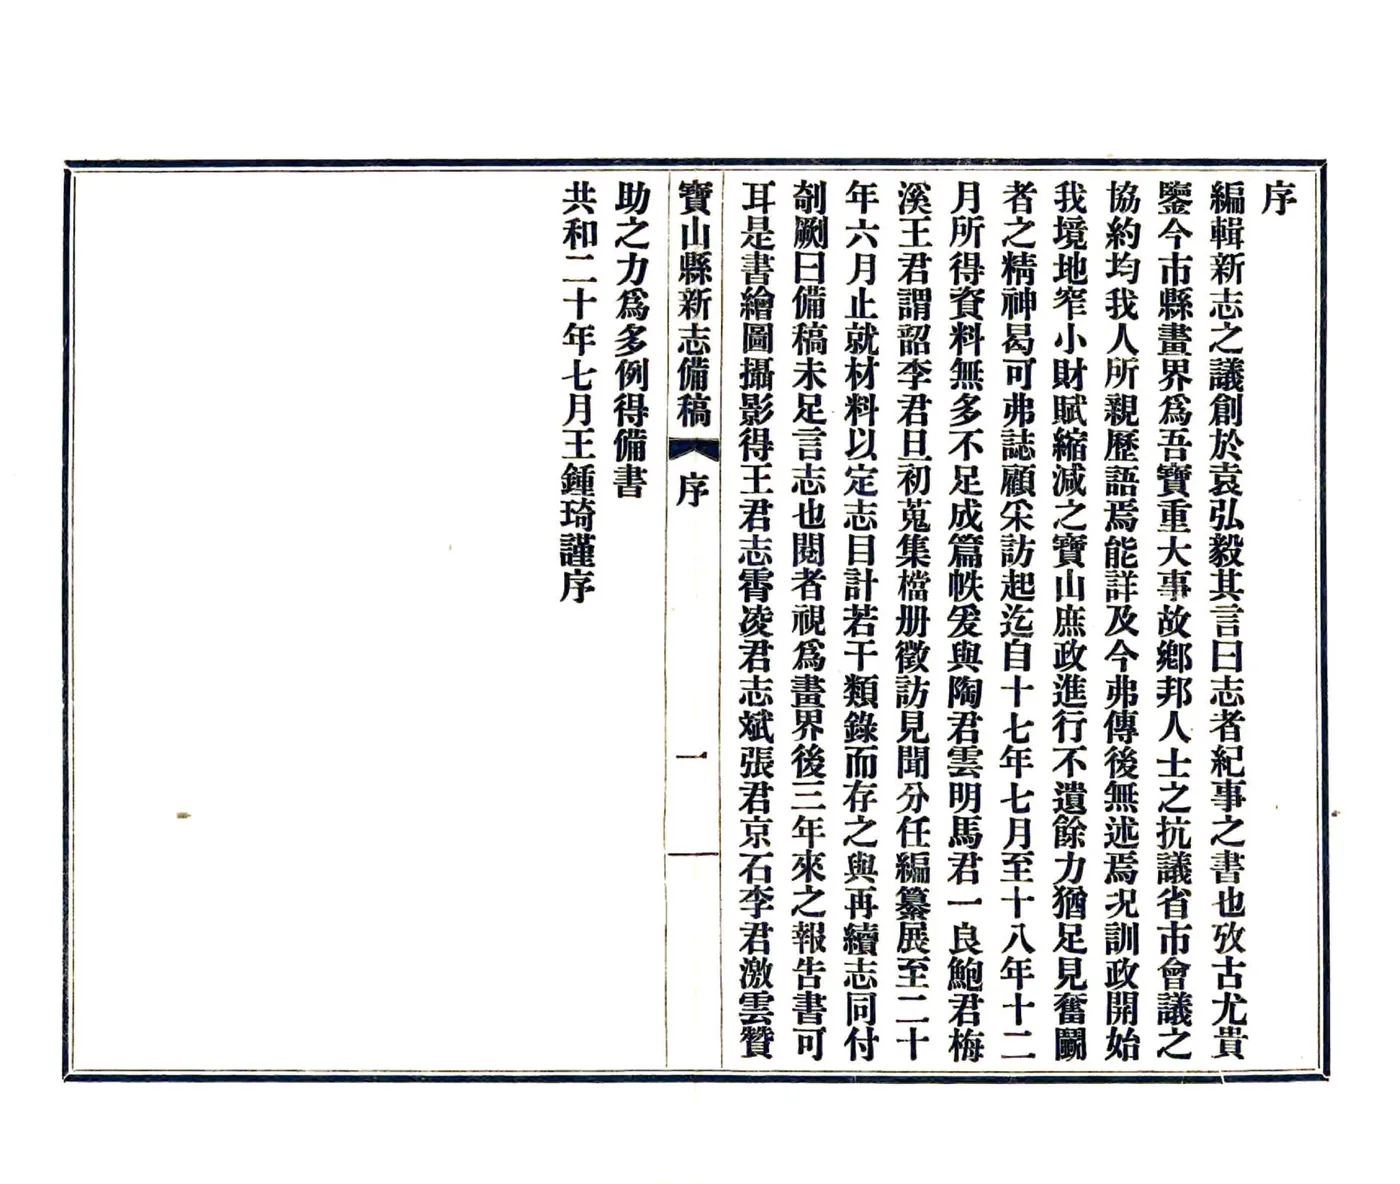 序
編輯新志之議創於袁弘毅其言曰志者紀事之書也攷古尤貴
鑒今市縣畫界爲吾寶重大事故鄉邦人士之抗議省市會議之
協約均我人所親歷語焉能詳及今弗傳後無述焉况訓政開始
我境地窄小財賦縮減之寶山庶政進行不遺餘力猶足見奮鬭
者之精神曷可弗誌顧采訪起迄自十七年七月至十八年十二
月所得資料無多不足成篇帙爰與陶君雲明馬君一良鮑君梅
溪王君謂韶李君旦初蒐集檔册徵訪見聞分任編纂展至二十
年六月止就材料以定志目計若干類錄而存之與再續志同付
剞劂曰備稿未足言志也閱者視爲畫界後三年來之報告書可
耳是書繪圖攝影得王君志霄凌君志斌張君京石李君激雲贊
寶山縣新志備稿 序 一
助之力爲多例得備書
共和二十年七月王鍾琦謹序